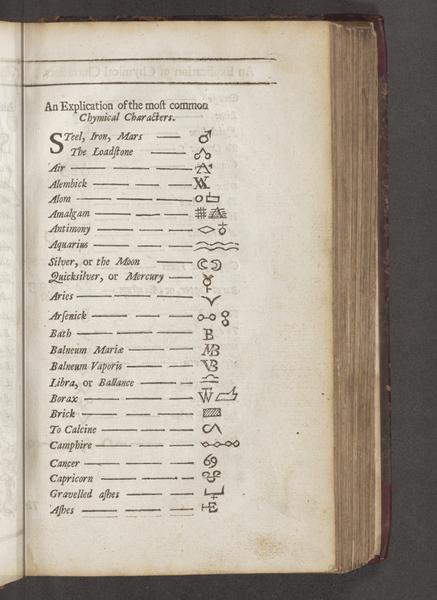 An Explication of the moſt common
Chymical Characters.
STeel, Iron, Mars ♂
The Loadſtone
Air
Alembick
Alom
Amalgam
Antimony
Aquarius
Silver, or the Moon
Quickſilver, or Mercury
Aries
Arſenick
Bath B
Balneum Mariæ MB
Balneum Vaporis VB
Libra, or Ballance ♎
Borax
Brick
To Calcine
Camphire
Cancer ♋
Capricorn
Gravelled aſhes
Aſhes